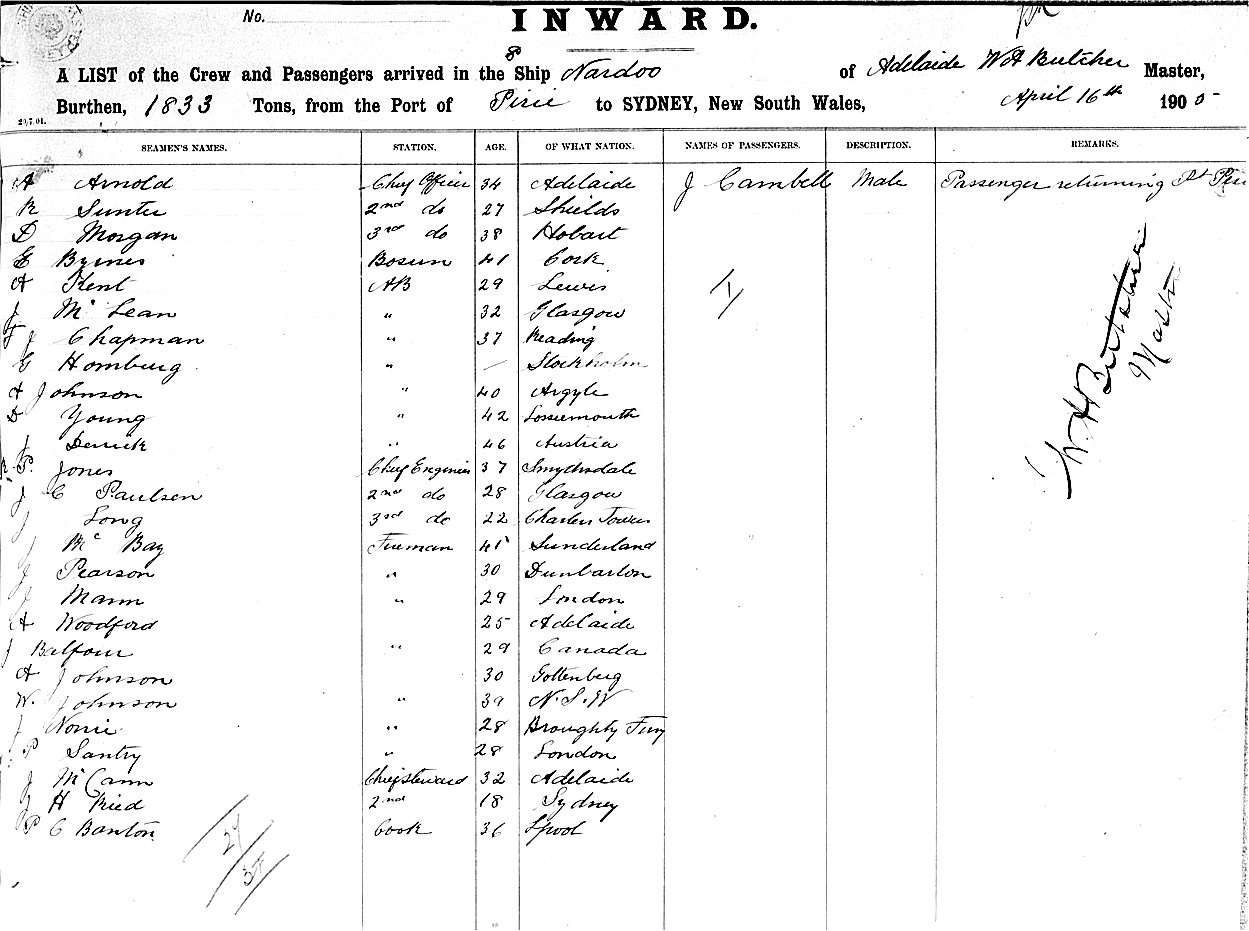 No.
INWARD.
A LIST of the Crew and Passengers arrived in the Ship Nardoo of Adelaide W A Butcher Master,
Burthen, 1833 Tons, from the Port of Pirie to SYDNEY, New South Wales, April 16th 1905
20.7.04.
SEAMEN'S NAMES. STATION. AGE. OF WHAT NATION. NAMES OF PASSENGERS. DESCRIPTION. REMARKS.
A Arnold Chief Officer 34 Adelaide J Cambell Male Passenger returning Pt Pirie
R Sunter 2nd do 27 Shields
D Morgan 3rd do 38 Hobart
E Byrnes Bosun 41 Cork
A Kent AB 29 Lewis
J Mc Lean " 32 Glasgow
F J Chapman " 37 Reading
G Homburg " Stockholm
A Johnson " 40 Argyle
D Young " 42 Lossiemouth
J Derrick " 46 Austria
R. P. Jones Chief Engineer 37 Smythsdale
J C Paulsen 2nd do 28 Glasgow
J Long 3rd do 22 Charters Towers
J Mc Bay Fireman 41 Sunderland
J Pearson " 30 Dunbarton
J Mann " 29 London
A Woodford 25 Adelaide
J Balfour " 29 Canada
A Johnson 30 Gottenberg
W. Johnson " 39 N.S.W
J Norrie " 28 Broughty Ferry
P Santry " 28 London
J McCann Chief Steward 32 Adelaide
J H Ried 2nd 18 Sydney
P C Banton Cook 36 Lpool
1/
27/
37/
W. A Butcher
Master